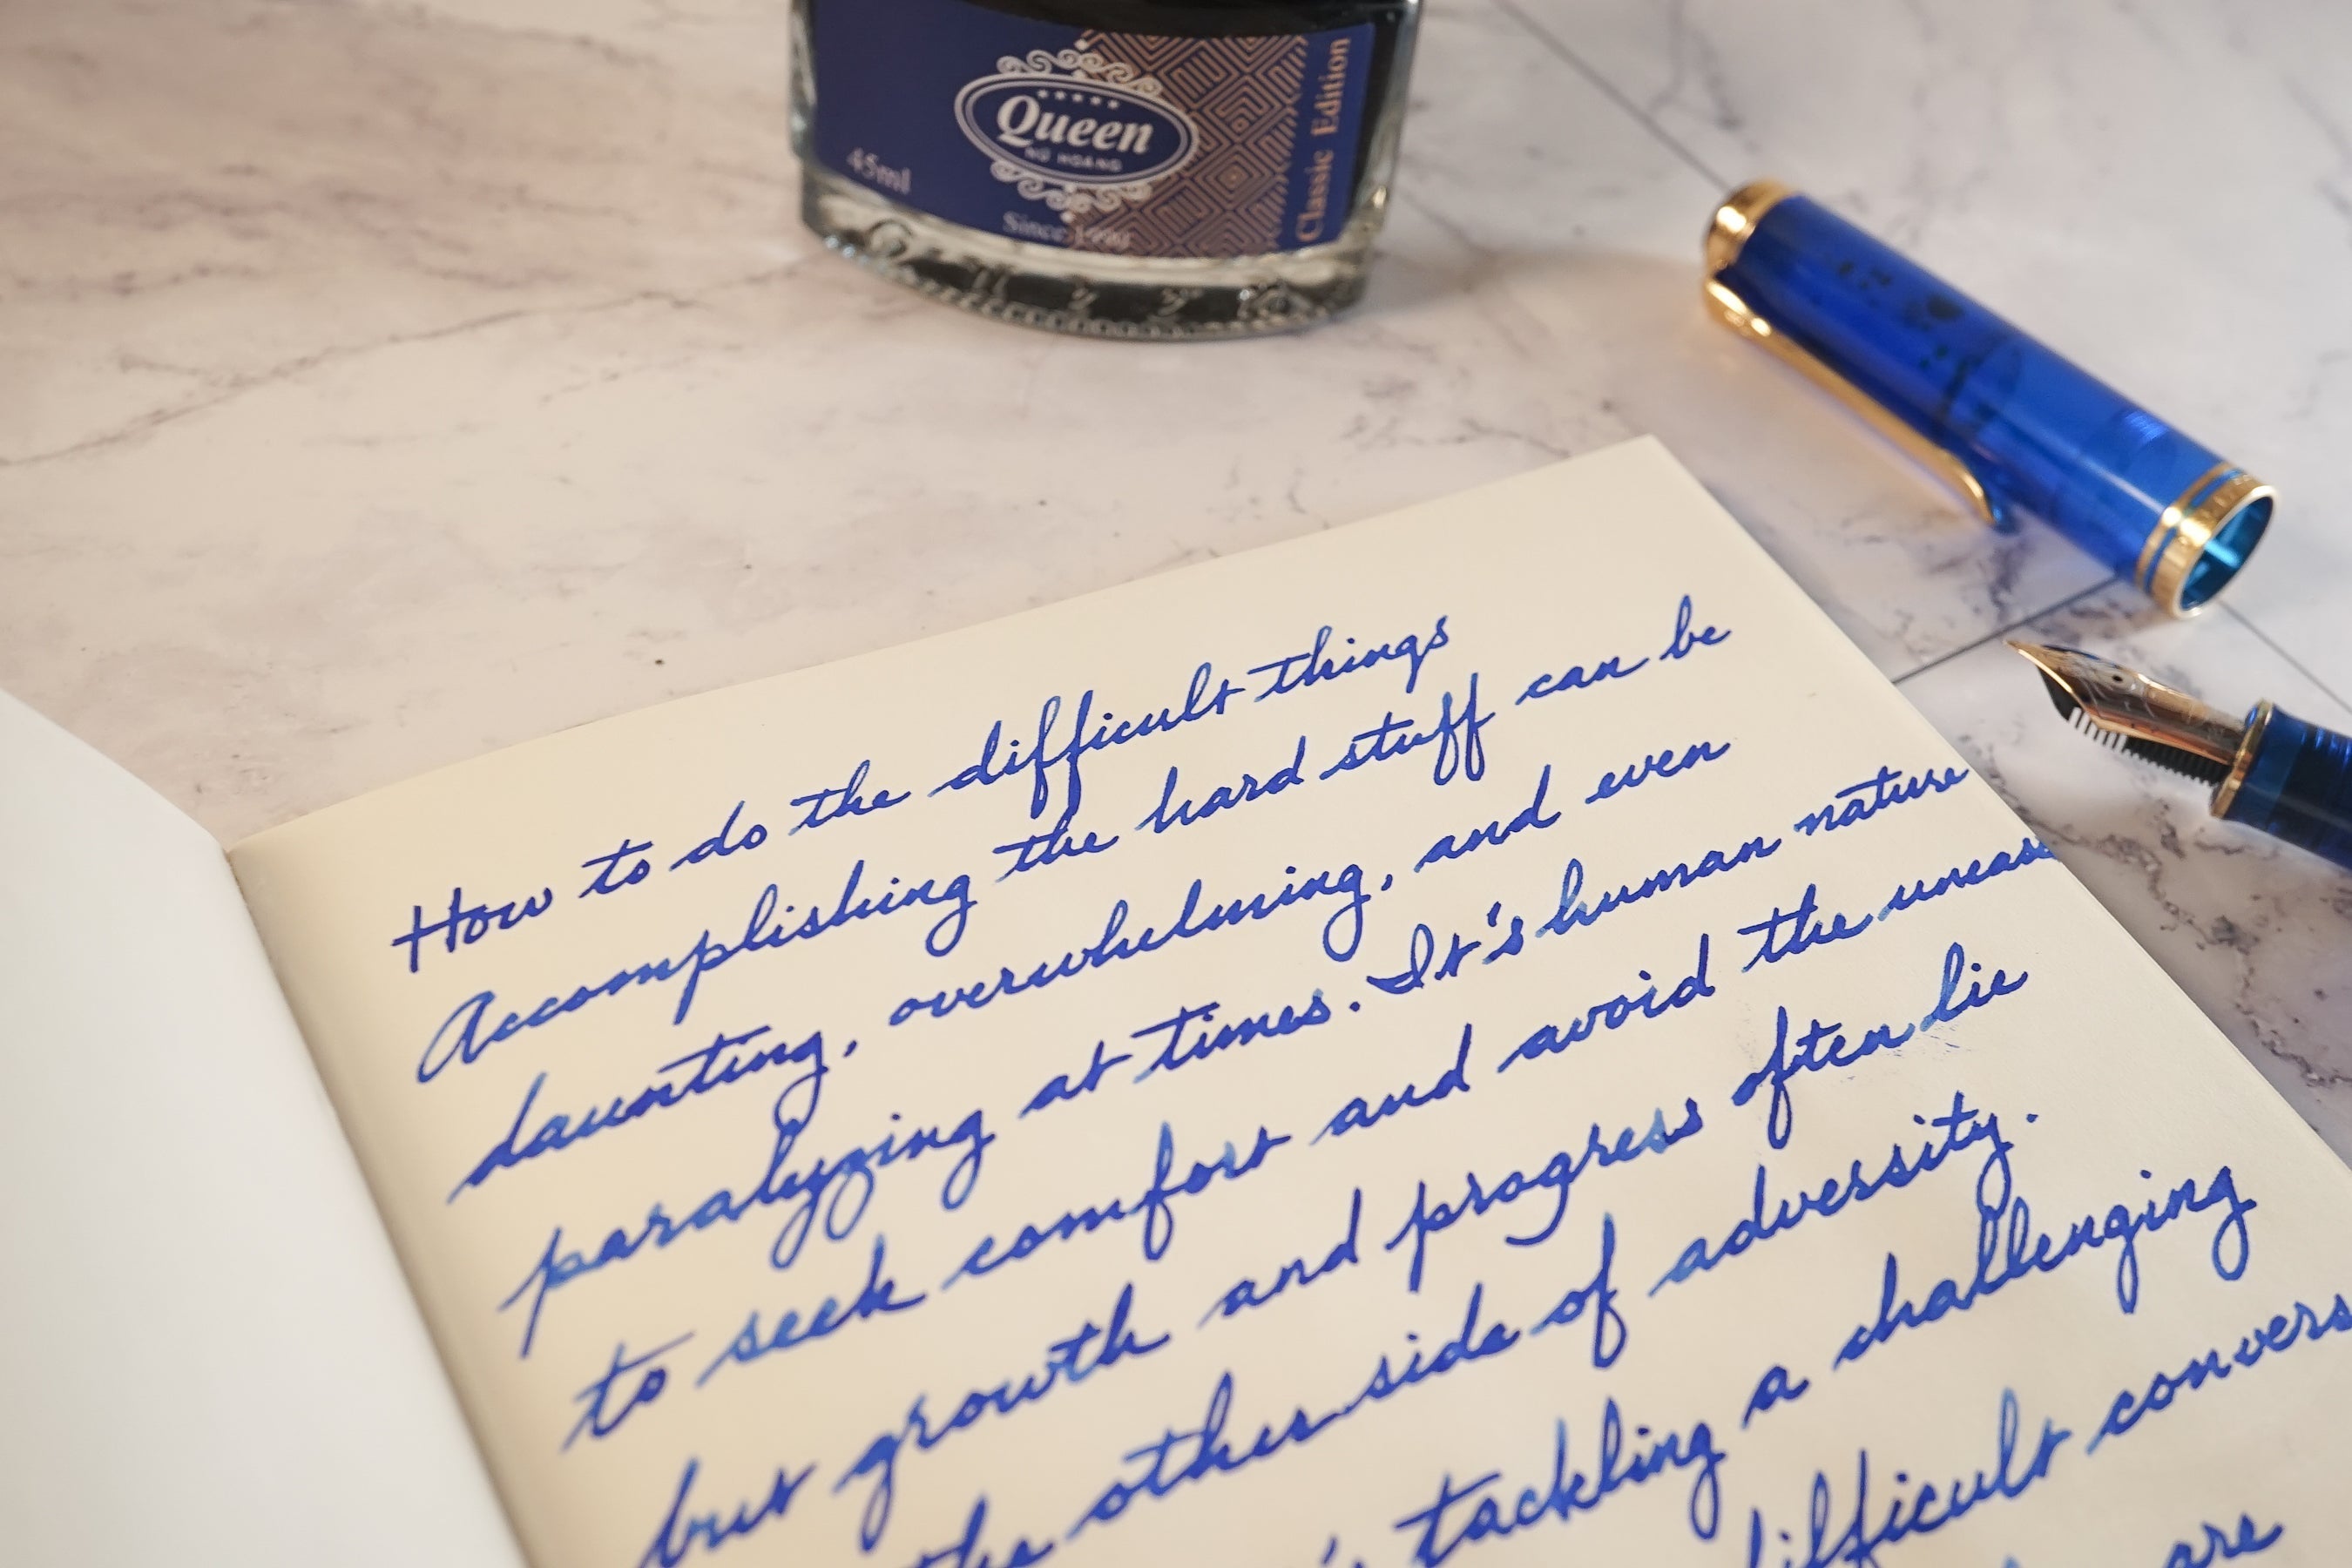 Queen
NỮ HOÀNG
45ml
Since
Classic Edition
How to do the difficult things
Accomplishing the hard stuff can be
daunting, overwhelming, and even
paralyzing at times. It's human nature
to seek comfort and avoid the uneas
but growth and progress often lie
the other side of adversity.
tackling a challenging
difficult convers
are